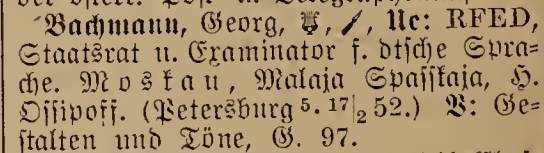 Bachmann, Georg, Uc: RFED,
Staatsrat u. Examinator f. dtsche Spra=
che. Moskau, Malaja Spasskaja, H.
Ossipoff. (Petersburg 5. 17|2 52.) V: Ge=
stalten und Töne, G. 97.